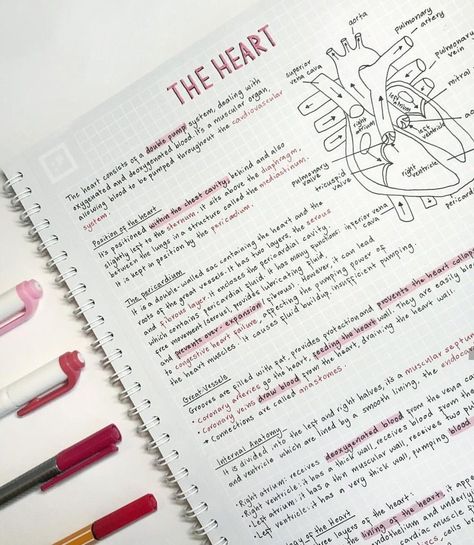 THE HEART
The heart consists of a double pump system, dealing with
oxygenated and deoxygenated blood. It's a muscular organ,
allowing blood to be pumped throughout the cardiovascular
system.
Position of the heart
It's positioned within the chest cavity, behind and also
slightly left to the sternum. It sits above the diaphragm,
between the lungs in a structure called the mediastinum.
It is kept in position by the pericardium.
The pericardium
It is a double-walled sac containing the heart and the
roots of the great vessels. It has two layers, the serous
and fibrous layer. It encloses the pericardial cavity
which contains pericardial fluid. It has many functions:
free movement (serous), provide lubricating fluid
and prevents over-expansion (fibrous). However, it can lead
congestive heart failure, affecting the pumping power of
the heart muscles. It causes fluid buildup, insufficient pumping.
Great Vessels
Grooves are filled with fat, provides protection and prevents the heart collaps
• Coronary arteries go the heart, feeding the heart wall. They are easily
• Coronary veins draw blood from the heart, draining the heart wall.
• Connections are called anastomoses.
Internal Anatomy
It is divided into the left and right halves, its a muscular septum
and ventricle which are lined by a smooth lining, the endoc
• Right atrium: receives deoxygenated blood from the vena
• Right ventricle: it has a thick wall, receives blood from
• Left atrium: it has a thin muscular wall, receives two
• Left ventricle: it has a very thick wall, pumping blood
of the Heart
layers of the heart:
the lining of the heart, it appe
aorta
pulmonary
artery
pulmonary
vein
superior
vena cava
left
atrium
mitral
right
atrium
left
ventricle
right
ventricle
pulmonary
valve
tricuspid
valve
inferior vena
cava